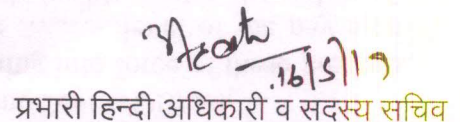 16/5/17
प्रभारी हिन्दी अधिकारी व सदस्य सचिव